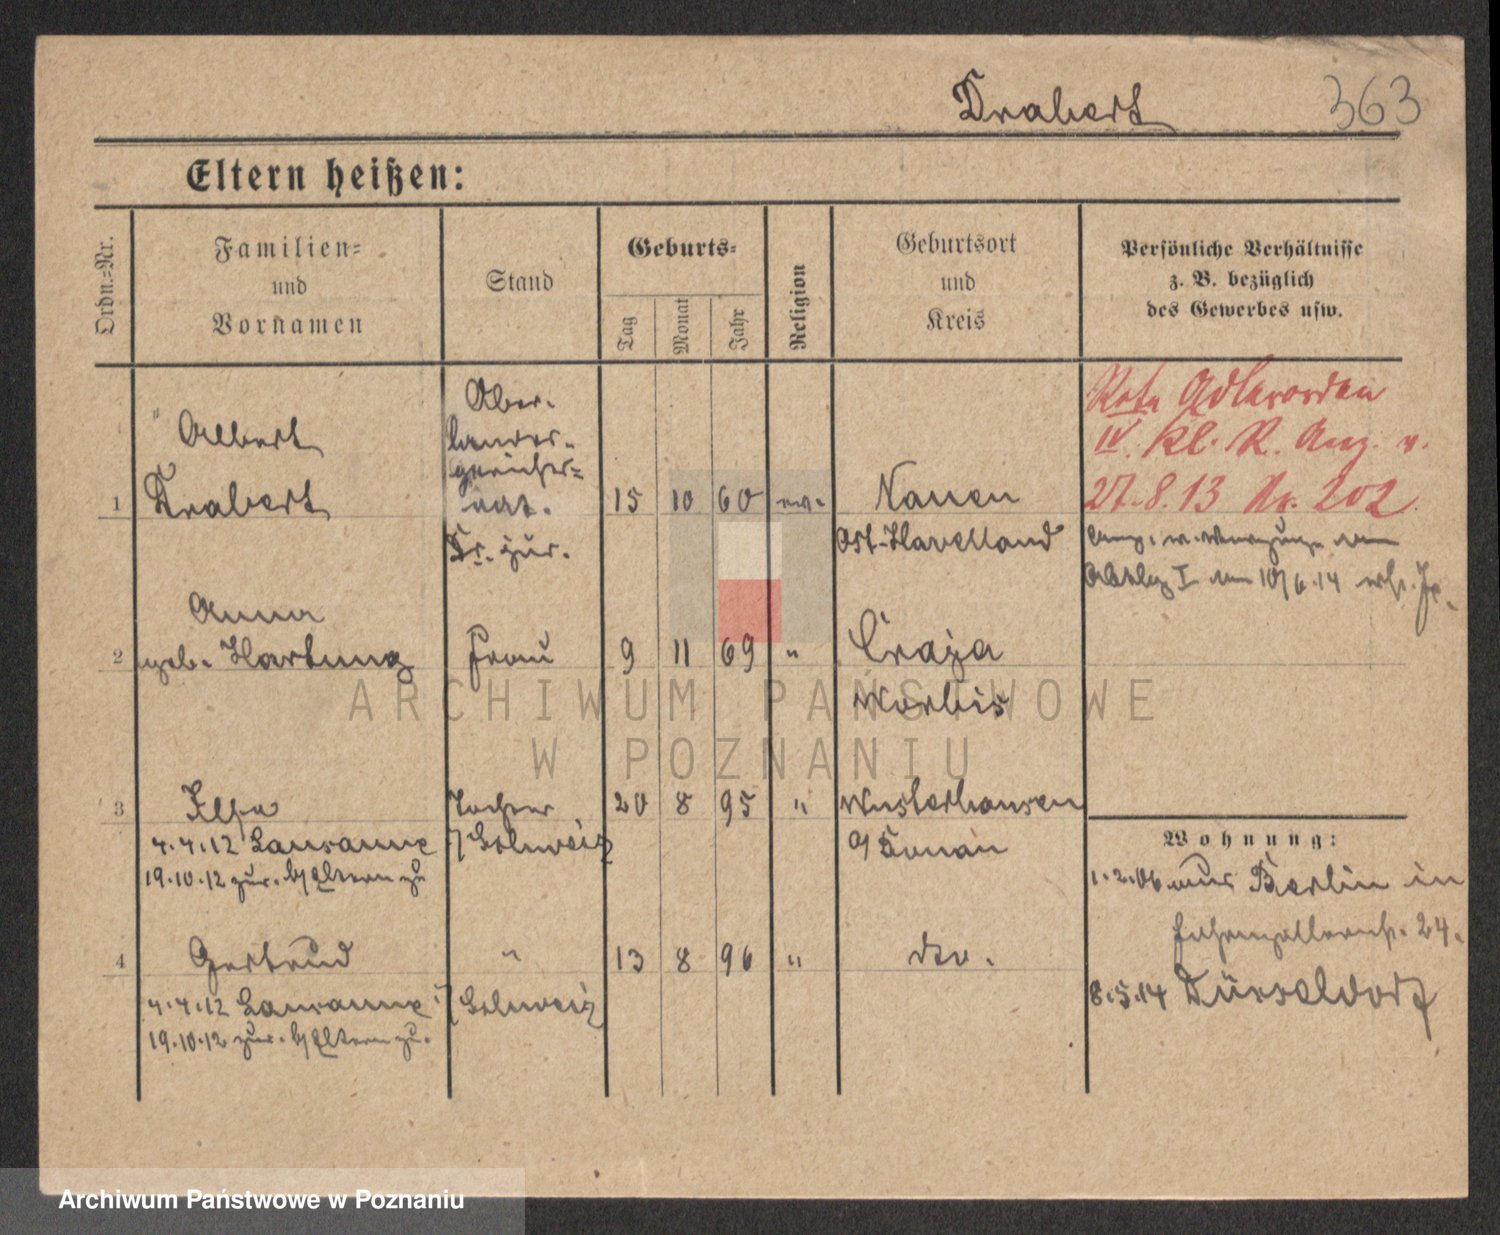 Drabert 363
Eltern heißen:
Ordn.=Nr.
Familien=
und
Vornamen
Stand
Geburts=
Tag
Monat
Jahr
Religion
Geburtsort
und
Kreis
Persönliche Verhältnisse
z. B. bezüglich
des Gewerbes usw.
1
Albert
Drabert
Ober-
landes-
gerichts=
rat.
Dr. jur.
15 10 60 ev.
Nauen
Ost-Havelland
Rote Adlerorden
IV. Kl. R. Anz. v.
27.8.13 Nr. 202.
Abtlg I 10/6.14
2
Anna
geb. Hartung
Frau
9 11 69 "
Craja
Worbis
3
Ilse
Tochter
20 8 95 "
Wusterhausen
4.4.12 Lausanne / Schweiz
19.10.12 zur. b/Eltern zu
Wohnung:
1.2.06 aus Berlin in
Hohenzollernstr. 24.
8.5.14 Düsseldorf
4
Gertrud
"
13 8 96 "
dto.
4.4.12 Lausanne / Schweiz
19.10.12 zur. b/Eltern zu.
ARCHIWUM PAŃSTWOWE
W POZNANIU
Archiwum Państwowe w Poznaniu